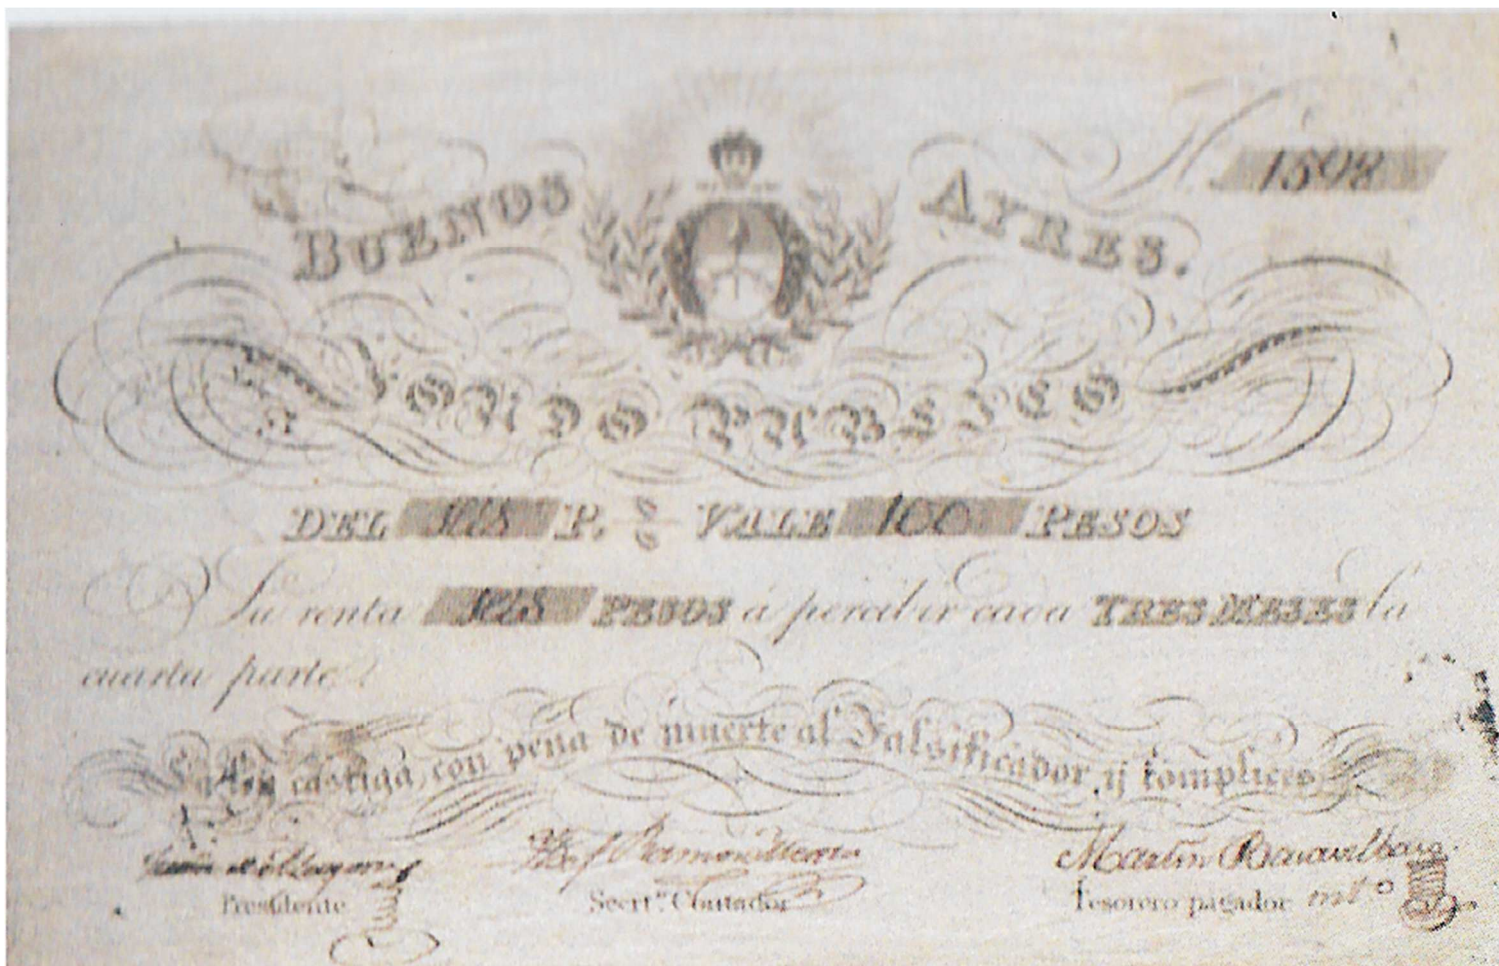 BUENOS AYRES.
1598
FONDO PUBLICO
DEL SEIS P. % VALE 100 PESOS
Su renta SEIS PESOS á percibir cada TRES MESES la
cuarta parte.
La Ley castiga con pena de muerte al Falsificador y complices
Presidente
Secrt.º Contador
Martin
Tesorero pagador